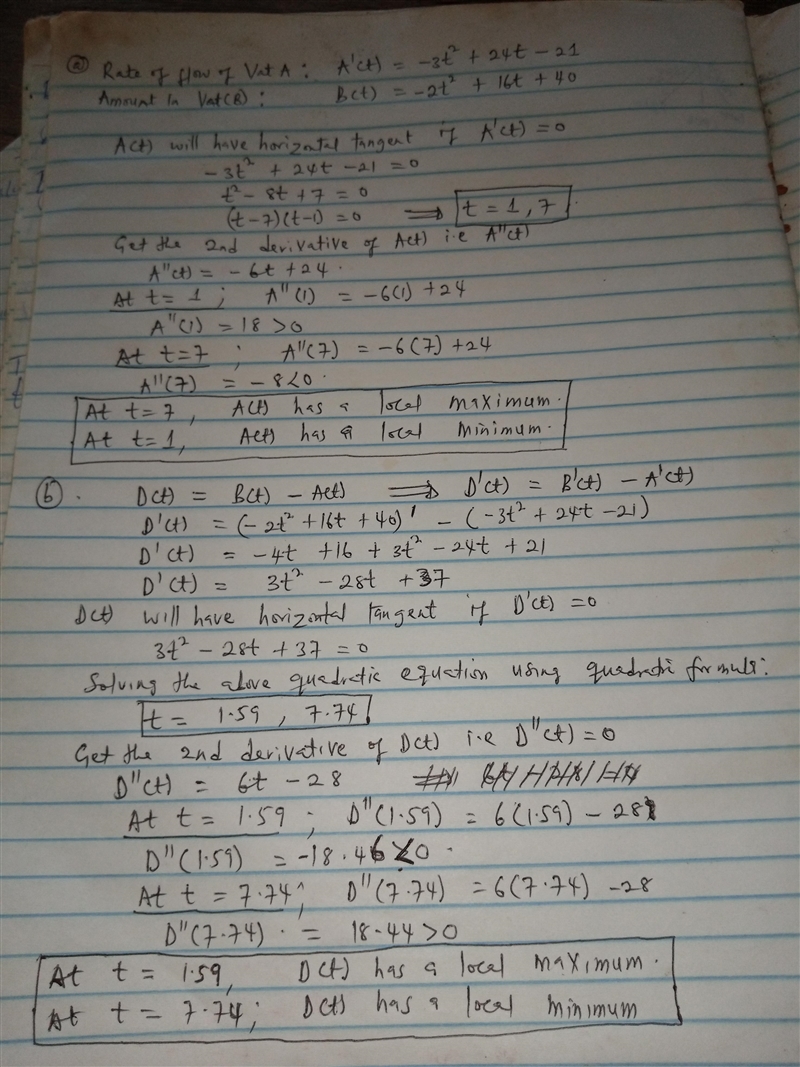 (a) Rate of flow of Vat A : A'(t) = -3t² + 24t - 21
Amount in Vat(B) : B(t) = -2t² + 16t + 40
A(t) will have horizontal tangent if A'(t) = 0
-3t² + 24t - 21 = 0
t² - 8t + 7 = 0
(t-7)(t-1) = 0 ⟹ t = 1, 7
Get the 2nd derivative of A(t) i.e A"(t)
A"(t) = -6t + 24.
At t = 1 ; A"(1) = -6(1) + 24
A"(1) = 18 > 0
At t = 7 ; A"(7) = -6(7) + 24
A"(7) = -8 < 0.
At t = 7, A(t) has a local maximum.
At t = 1, A(t) has a local minimum.
(b). D(t) = B(t) - A(t) ⟹ D'(t) = B'(t) - A'(t)
D'(t) = (-2t² + 16t + 40)' - (-3t² + 24t - 21)
D'(t) = -4t + 16 + 3t² - 24t + 21
D'(t) = 3t² - 28t + 37
D(t) will have horizontal tangent if D'(t) = 0
3t² - 28t + 37 = 0
Solving the above quadratic equation using quadratic formula:
t = 1.59, 7.74
Get the 2nd derivative of D(t) i.e D"(t) = 0
D"(t) = 6t - 28
At t = 1.59 ; D"(1.59) = 6(1.59) - 28
D"(1.59) = -18.46 < 0.
At t = 7.74 ; D"(7.74) = 6(7.74) - 28
D"(7.74) = 18.44 > 0
At t = 1.59, D(t) has a local maximum.
At t = 7.74; D(t) has a local minimum